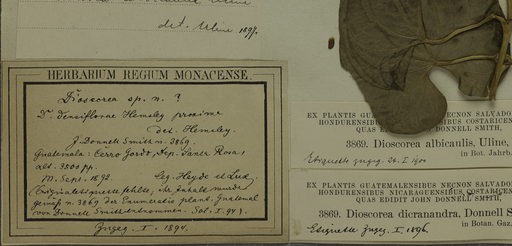 det. Uline 1897.
HERBARIUM REGIUM MONACENSE.
Dioscorea sp. n. ?
D. densiflorae Hemsley proxime
det. Hemsley.
J. Donnell Smith n. 3869.
Guatemala: Cerro Gordo, Dep. Santa Rosa,
alt. 3500 pp.
M. Sept. 1892. Leg. Heyde et Lux.
(Originaletiquette fehlte, ihr Inhalt wurde
gemäß n. 3869 der Enumeratio plant. Guatemal.
von Donnell Smith entnommen. Sol. I. 94).
Inzeg. I. 1894.
EX PLANTIS GUATEMALENSIBUS NECNON SALVADOR
HONDURENSIBUS COSTARICEN
QUAS DONNELL SMITH,
3869. Dioscorea albicaulis, Uline,
in Bot. Jahrb.
Etiquette inzeg. I 1900
EX PLANTIS GUATEMALENSIBUS NECNON SALVADO
HONDURENSIBUS NICARAGUENSIBUS COSTARICE
QUAS EDIDIT JOHN DONNELL SMITH,
3869. Dioscorea dicranandra, Donnell S
in Botan. Gaz.
Etiquette inzeg. I 1896.